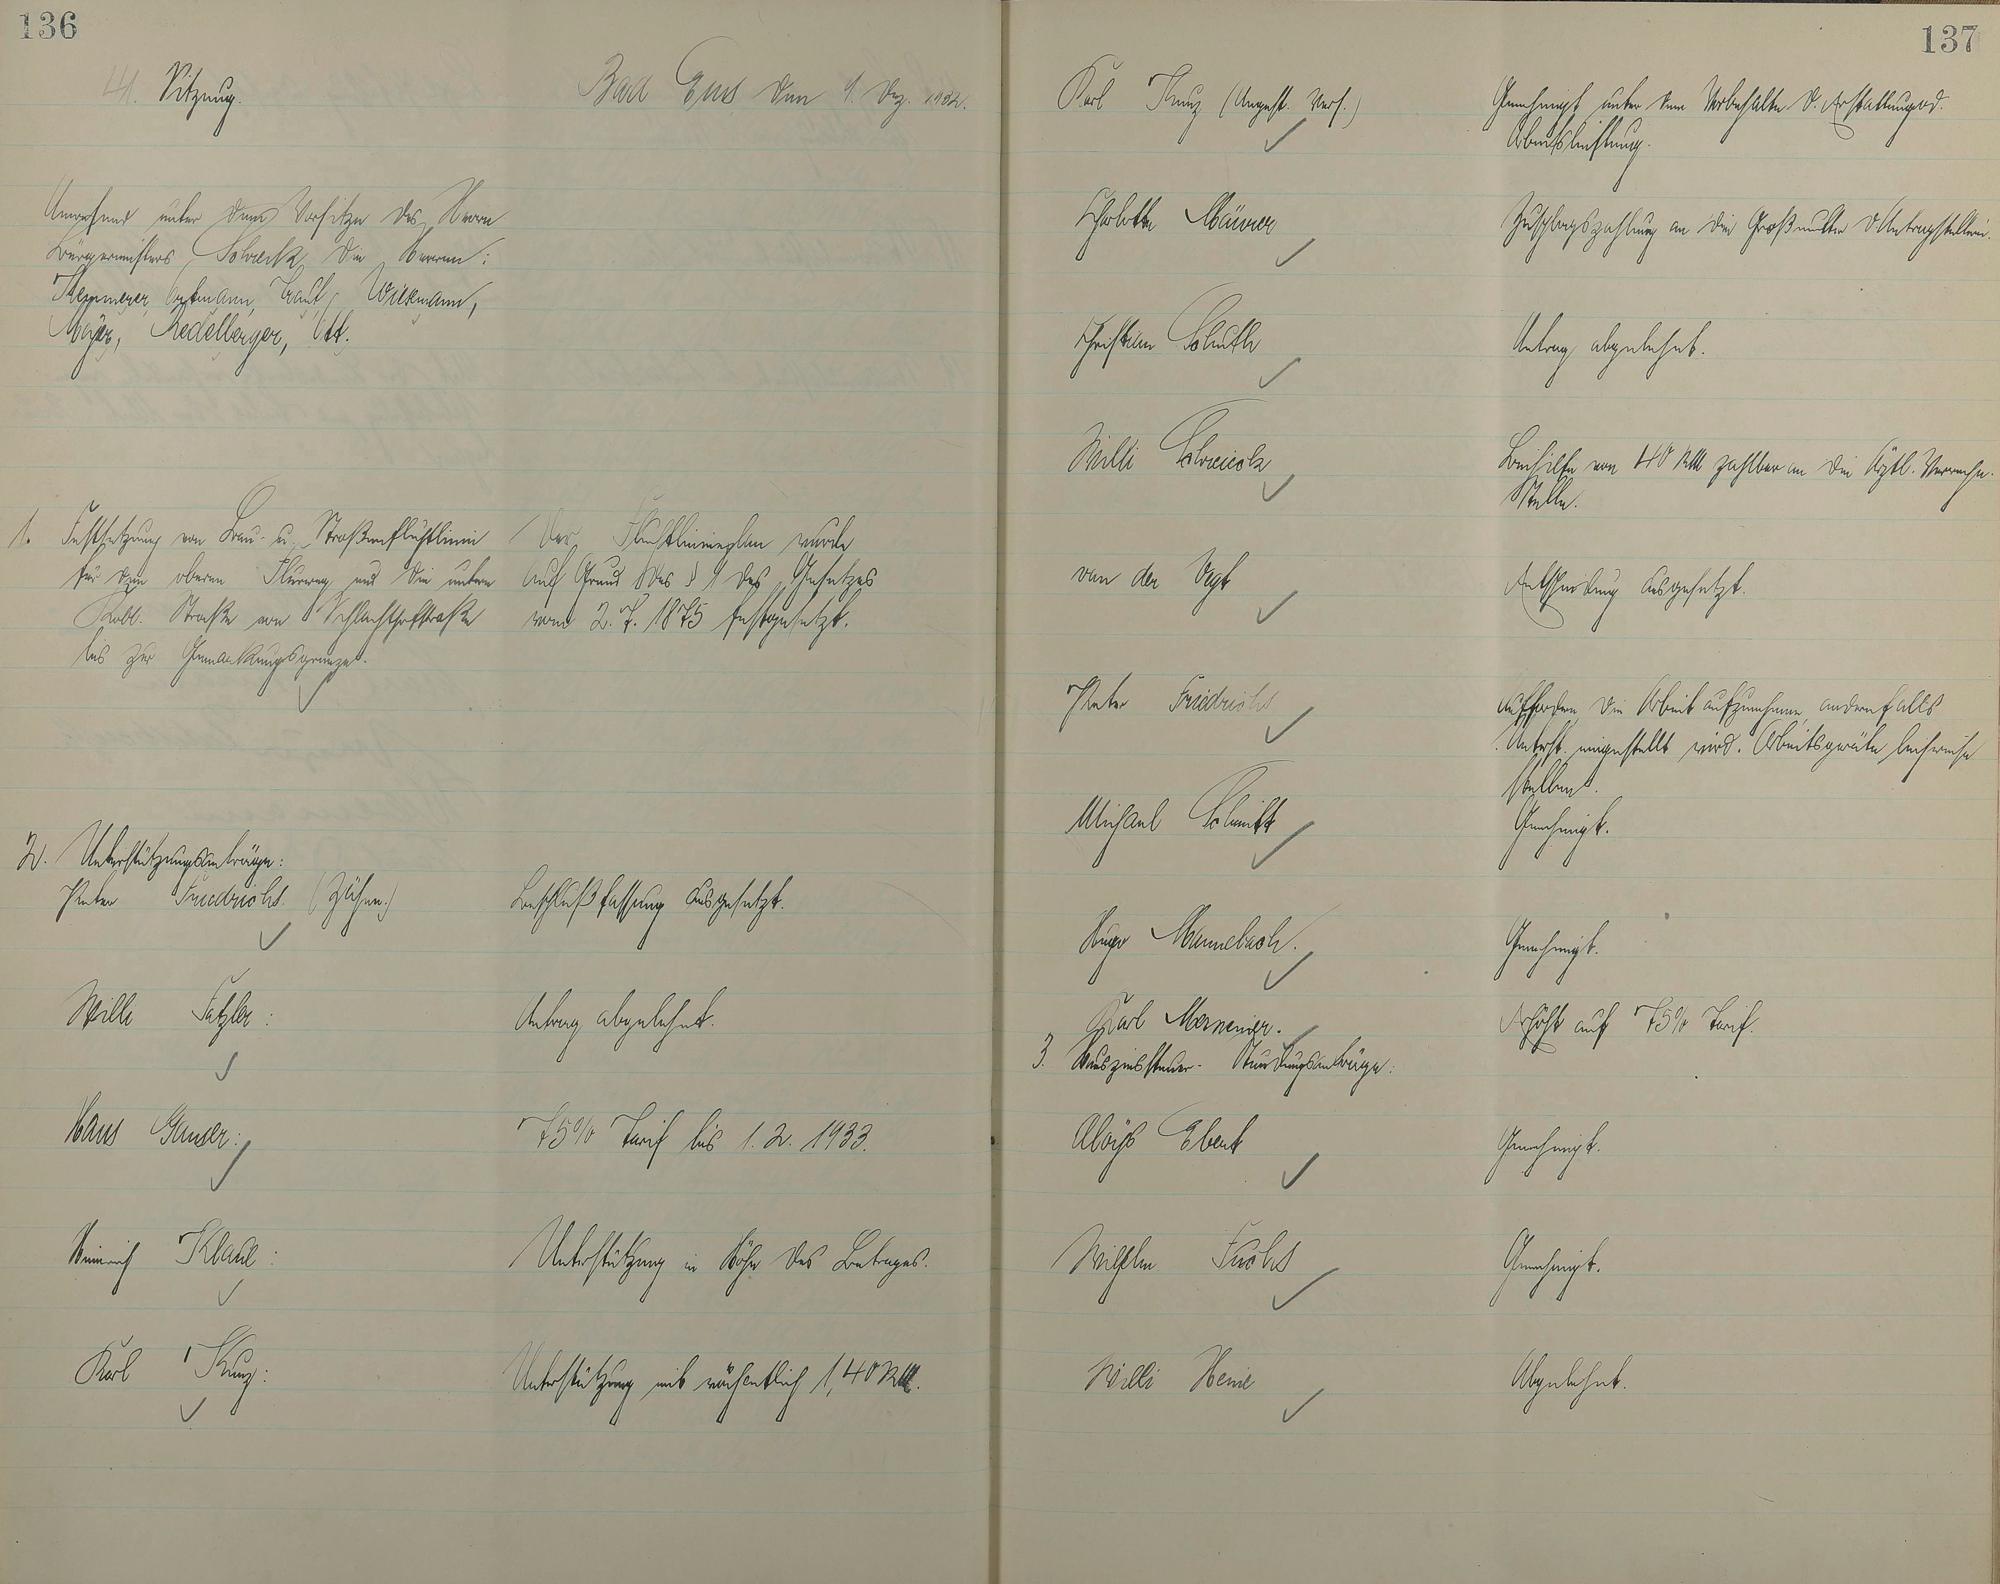 136
41. Sitzung.
Bad Ems den 9. Dez. 1932.
Anwesend unter dem Vorsitze des Herrn
Bürgermeisters Schreck die Herren:
Keppmeyer, Ortmann, Trauf, Wiekmann,
Mayer, Redelberger, Ott.
1. Festsetzung von Bau- u. Straßenfluchtlinien
für den oberen Flurweg und die untere
Kobl. Straße von Schlachthofstraße
bis zur Gemarkungsgrenze.
Der Fluchtlinienplan wurde
auf Grund des § 1 des Gesetzes
vom 2. 7. 1875 festgesetzt.
2. Unterstützungsanträge:
Peter Friedrichs. (Zähne.)
Beschlußfassung ausgesetzt.
Willi Fetzler:
Antrag abgelehnt.
Hans Ganser:
75% Tarif bis 1. 2. 1933.
Heinrich Klaue:
Unterstützung in Höhe des Betrages.
Karl Kunz:
Unterstützung mit wöchentlich 1,40 RM.
137
Karl Kunz (Angest. Vers.)
Genehmigt unter dem Vorbehalte d. Erstattung od.
Arbeitsleistung.
Charlotte Mäurer
Zuschlagszahlung an die Großmutter d. Antragstellerin.
Christian Schuth
Antrag abgelehnt.
Willi Schreieck
Beihilfe von 40 RM zahlbar an die Ärztl. Verrechn.
Stelle.
van der Vegt
Entscheidung ausgesetzt.
Peter Friedrichs
Auffordern die Arbeit aufzunehmen, andernfalls
Unterst. eingestellt wird. Arbeitsgeräte leihweise
stellen.
Michael Schmitt
Genehmigt.
Hugo Mannebach.
Genehmigt.
Karl
Erhöht auf 75% Tarif.
3. Hauszinssteuer- Stundungsanträge:
Aloys Ebert
Genehmigt.
Wilhelm Fuchs
Genehmigt.
Willi Heine
Abgelehnt.